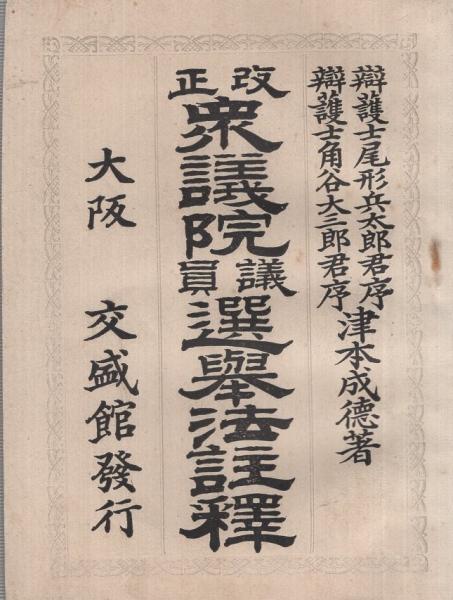 辯護士尾形兵太郎君序
辯護士角谷大三郎君序
津本成德著
改正
衆議院
議員
選擧法註釋
大阪 交盛館發行